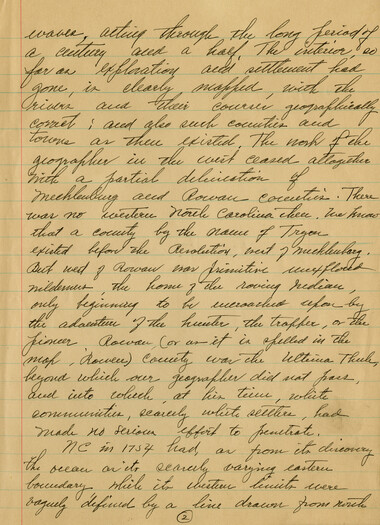 waves, acting through the long period of
a century and a half. The interior so
far as exploration and settlement had
gone, is clearly mapped, with the
rivers and their courses geographically
correct; and also such counties and
towns as then existed. The work of the
geographer in the west ceased altogether
with a partial delineation of
Mecklenburg and Rowan counties. There
was no western North Carolina then. We know
that a county by the name of Tryon
existed before the Revolution, west of Mecklenburg.
But west of Rowan was primitive unexplored
wilderness, the home of the roving Indian,
only beginning to be encroached upon by
the adventure of the hunter, the trapper, or the
pioneer. Rowan (or as it is spelled in the
map, ) County was the Ultima Thule,
beyond which our geographer did not pass,
and into which, at his time, white
communities, scarcely white settlers, had
made no serious effort to penetrate.
NC in 1734 had, as from its discovery
the ocean as its scarcely varying eastern
boundary while its western limits were
vaguely defined by a line drawn from north
2